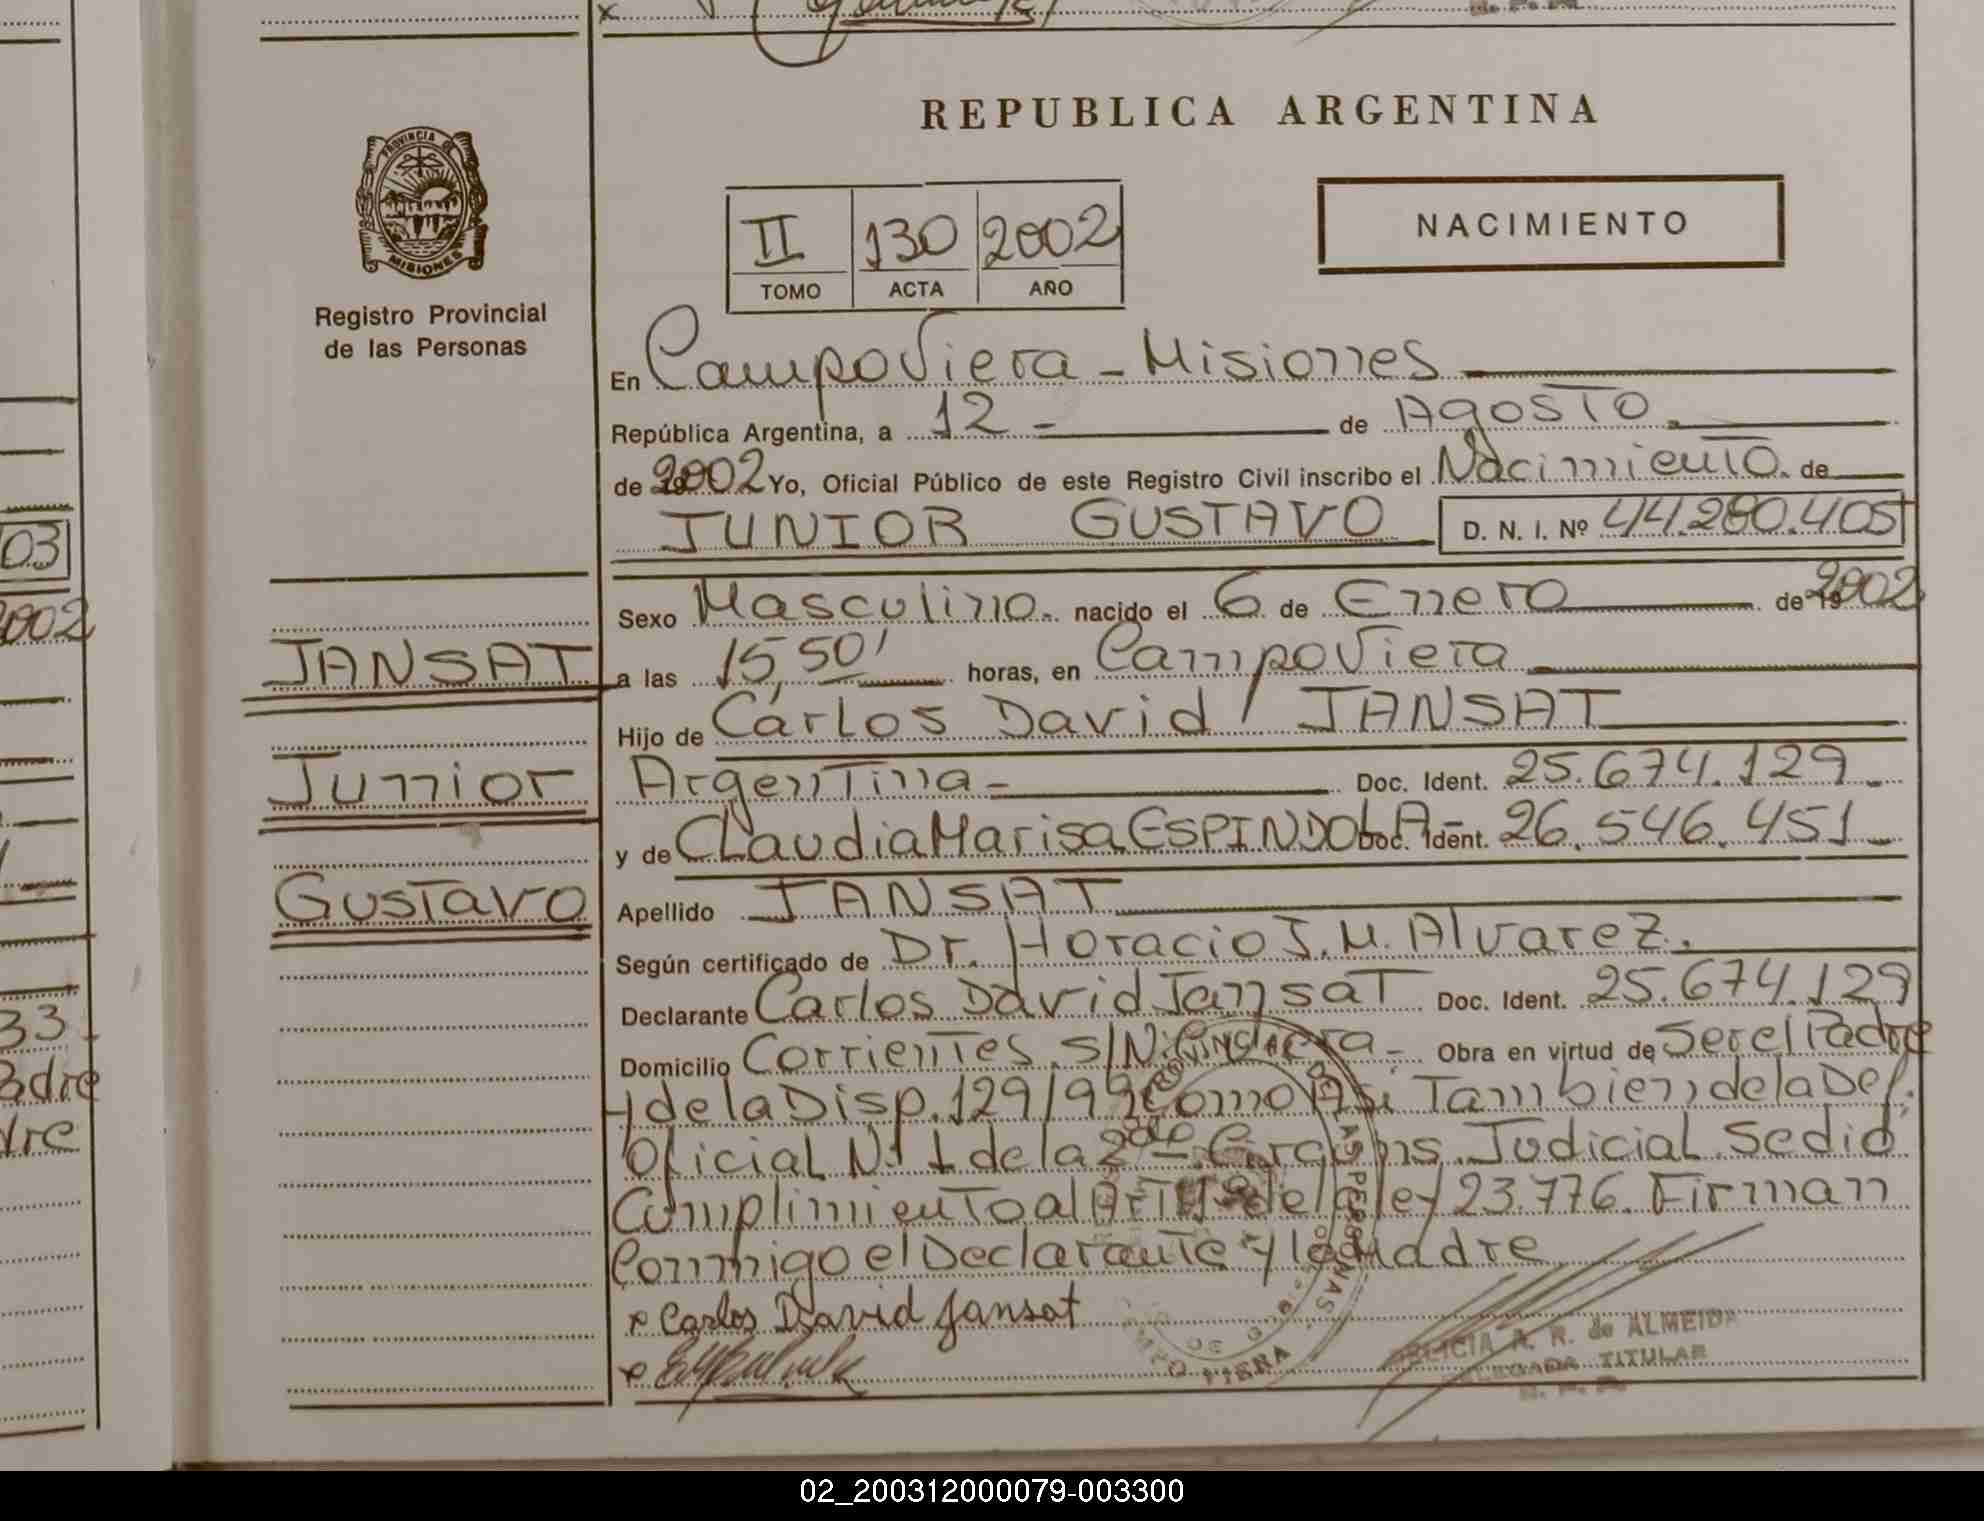 REPUBLICA ARGENTINA
PROVINCIA DE
MISIONES
Registro Provincial
de las Personas
II 130 2002
TOMO ACTA AÑO
NACIMIENTO
En Campo Viera - Misiones
República Argentina, a 12 - de Agosto
de 2002 Yo, Oficial Público de este Registro Civil inscribo el Nacimiento de
JUNIOR GUSTAVO D. N. I. Nº 44.280.405
Sexo Masculino nacido el 6 de Enero de 2002
JANSAT
a las 15,50' horas, en Campo Viera
Hijo de Carlos David JANSAT
Junior
Argentina - Doc. Ident. 25.674.129
y de Claudia Marisa ESPINDOLA - Doc. Ident. 26.546.451
Gustavo
Apellido JANSAT
Según certificado de Dr. Horacio J. M. Alvarez.
Declarante Carlos David Jansat Doc. Ident. 25.674.129
Domicilio Corrientes S/N: Obra en virtud de ser el Padre
y de la Disp. 129/99 como Asi Tambien de la Def.
Oficial N: 1 de la 2da Circuns. Judicial. Se dió
Cumplimiento al Art. de la ley 23.776. Firman
Conmigo el Declarante y la Madre
x Carlos David Jansat
DELICIA A. R. de ALMEIDA
DELEGADA TITULAR
R. P. P.
03
2002
33
Padre
dre
02_200312000079-003300